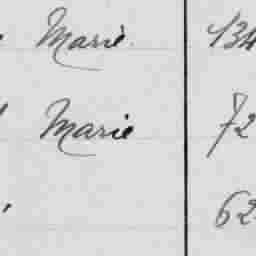 Marie 134
Marie 72
62